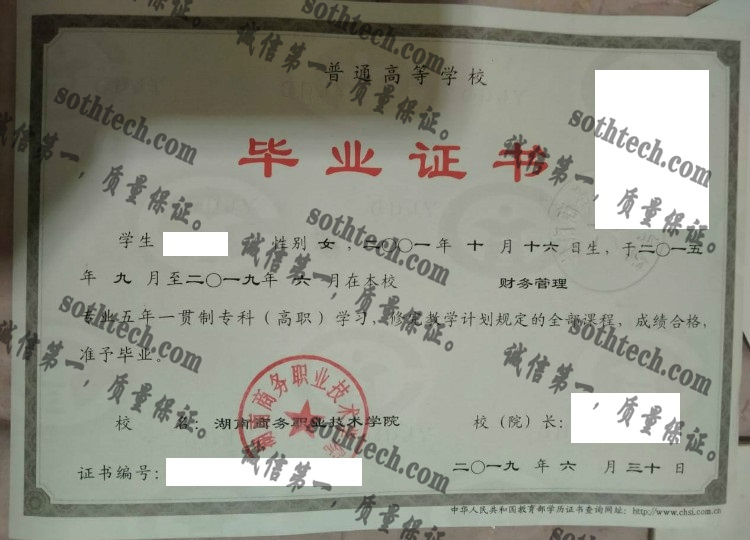 普通高等学校
毕业证书
学生 性别 女 ，二〇〇一年 十 月 十六 日生，于二〇一五
年 九 月至二〇一九年 六 月在本校 财务管理
专业五年一贯制专科（高职）学习，修完教学计划规定的全部课程，成绩合格，
准予毕业。
校 名：湖南商务职业技术学院 校（院）长：
证书编号： 二〇一九 年 六 月 三十 日
中华人民共和国教育部学历证书查询网址：http://www.chsi.com.cn
湖南商务职业技术学院
sothtech.com
诚信第一，质量保证。
sothtech.com
诚信第一，质量保证。
sothtech.com
诚信第一，质量保证。
sothtech.com
诚信第一，质量保证。
sothtech.com
诚信第一，质量保证。
sothtech.com
诚信第一，质量保证。
sothtech.com
诚信第一，质量保证。
sothtech.com